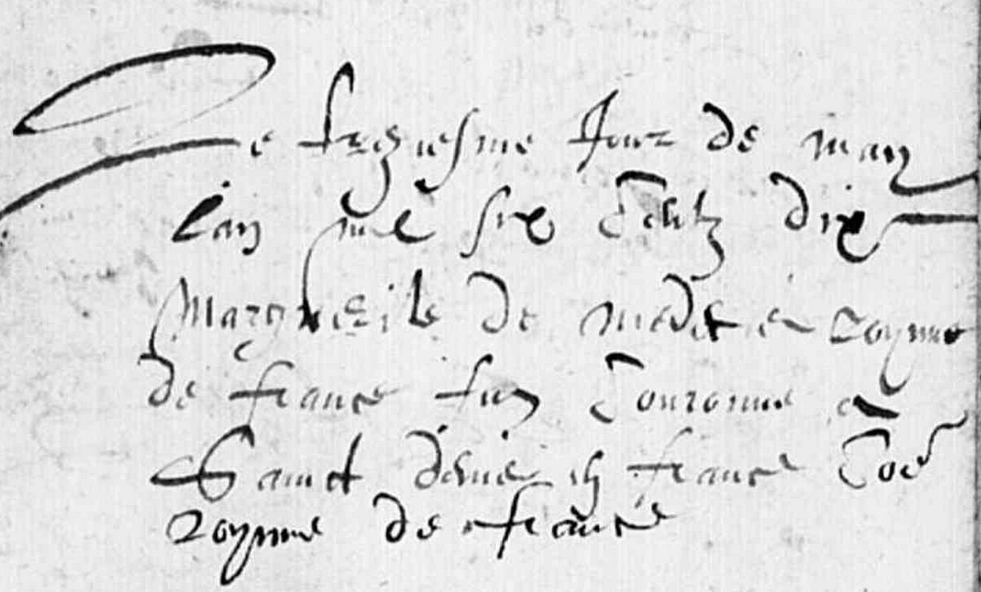 Le treziesme Jour de may
l'an mil six centz dix
Marguerite de medecie royne
de france fut Couronnee a
Sainct denis en france Coe
royne de france